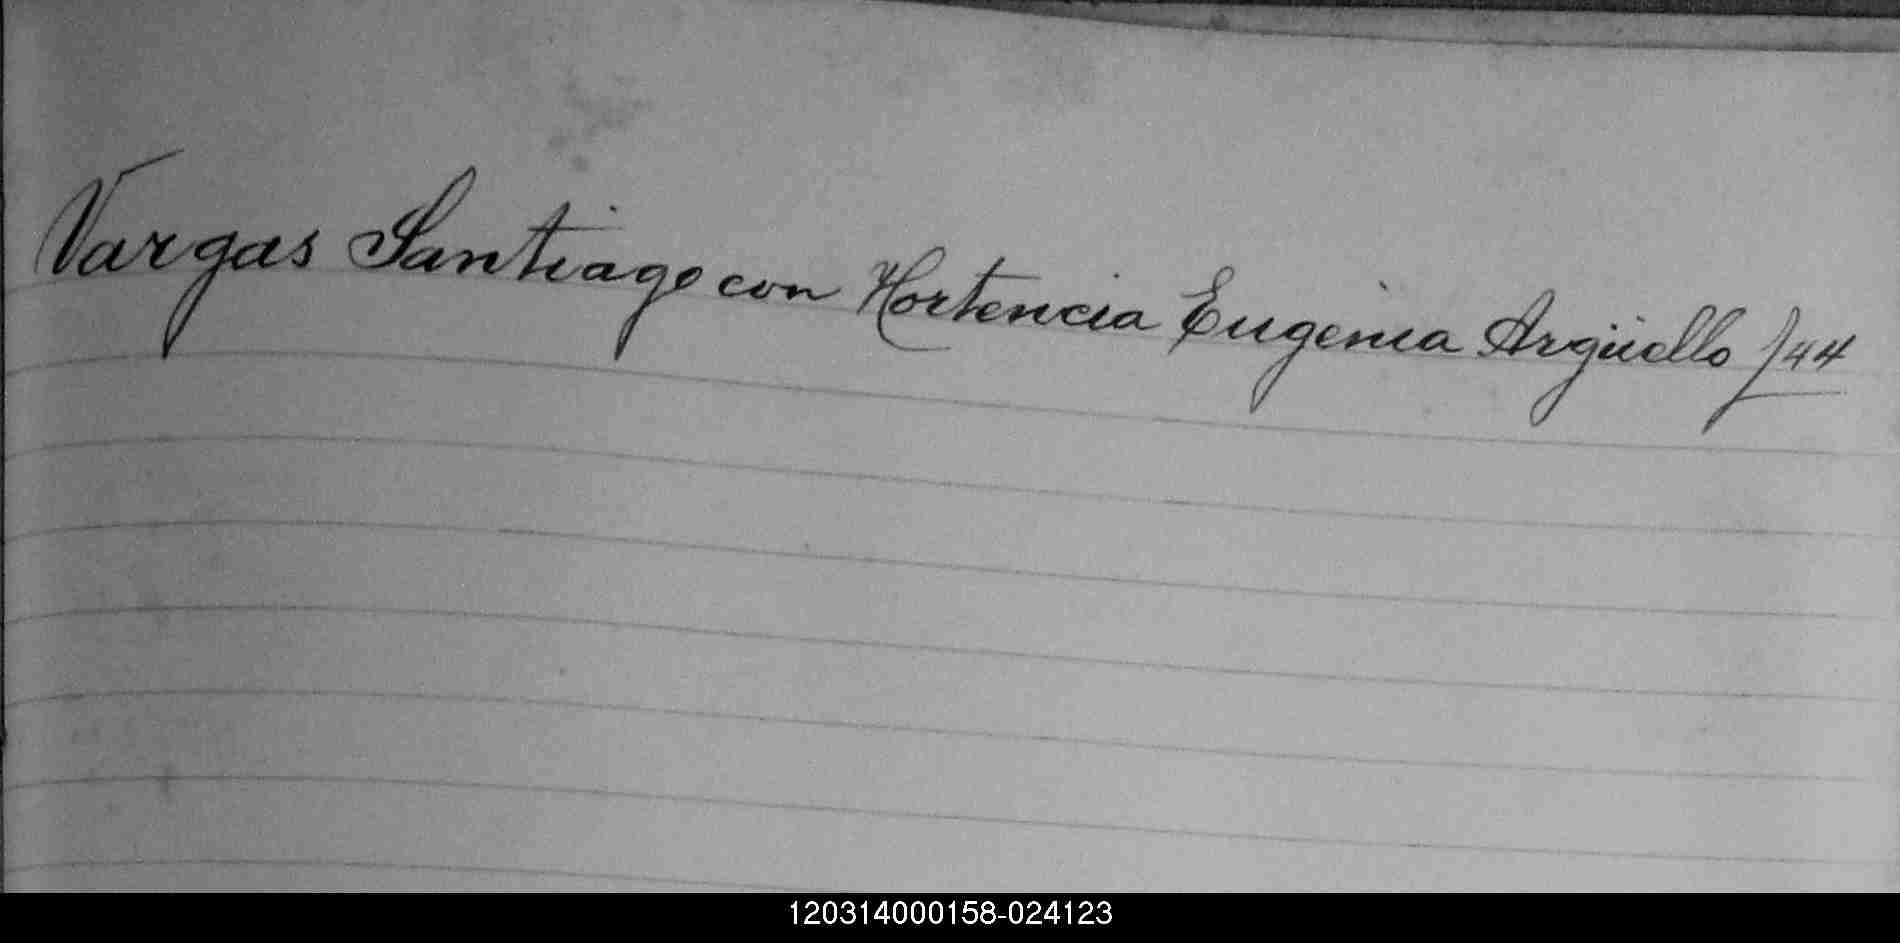 Vargas Santiago con Hortencia Eugenia Argüello /44
120314000158-024123